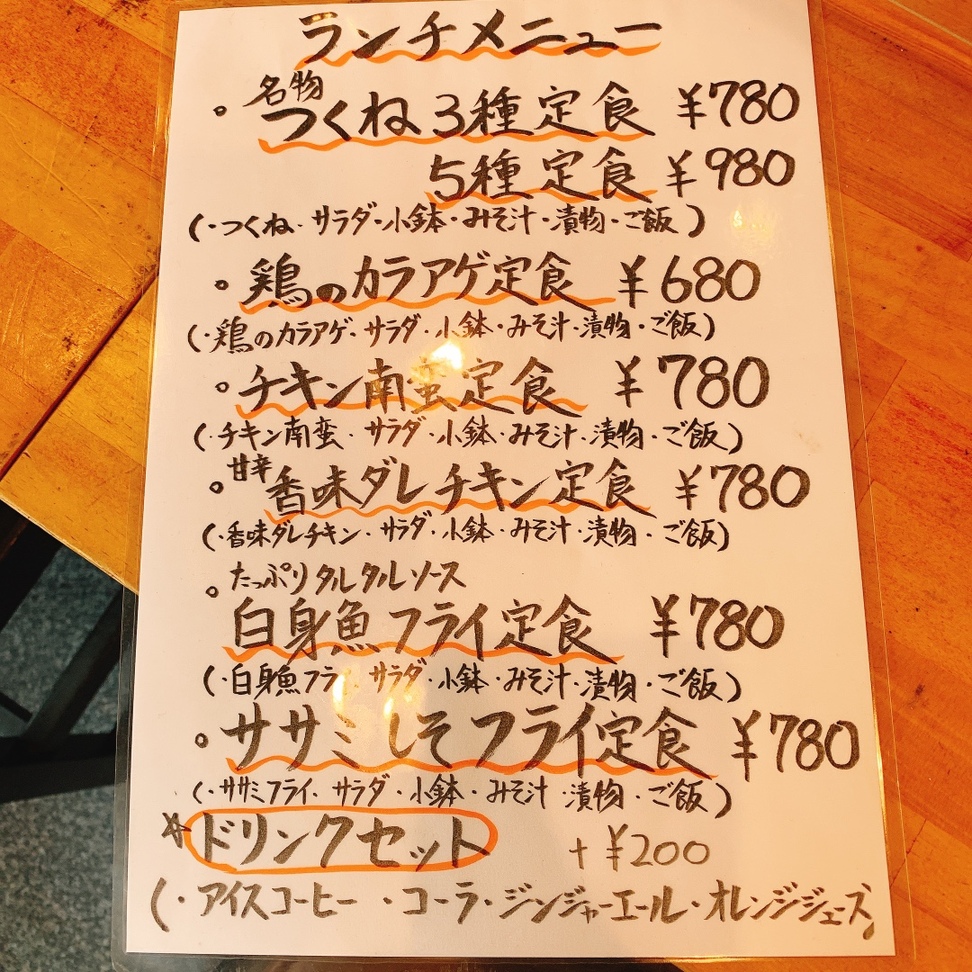 ランチメニュー
名物
。つくね3種定食 ¥780
5種定食 ¥980
(・つくね・サラダ・小鉢・みそ汁・漬物・ご飯)
。鶏のカラアゲ定食 ¥680
(・鶏のカラアゲ・サラダ・小鉢・みそ汁・漬物・ご飯)
。チキン南蛮定食 ¥780
(・チキン南蛮・サラダ・小鉢・みそ汁・漬物・ご飯)
甘辛
。香味ダレチキン定食 ¥780
(・香味ダレチキン・サラダ・小鉢・みそ汁・漬物・ご飯)
。たっぷりタルタルソース
白身魚フライ定食 ¥780
(・白身魚フライ・サラダ・小鉢・みそ汁・漬物・ご飯)
。ササミしそフライ定食 ¥780
(・ササミフライ・サラダ・小鉢・みそ汁・漬物・ご飯)
☆ドリンクセット +¥200
(・アイスコーヒー・コーラ・ジンジャーエール・オレンジジュース)